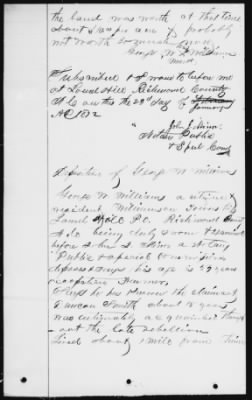 the land was worth at that time
about $10 per acre & probably
not worth so much now
George W Williams
Subscribed & sworn to before me
at Laurel Hill Richmond County
N.C. on this the 29th day of January
AD 1872
John
Notary Public
& Special Com
Deposition of George W Williams
George W Williams a citizen &
resident Williamson Township
Laurel Hill P.O. Richmond
N.C. being duly sworn & examined
before John a Notary
Public & special commission
deposes & says his age is years
occupation Farmer
Says he has known the claimant
Duncan Smith about years
was intimately acquainted through
out the late rebellion
lived about 1 mile from him